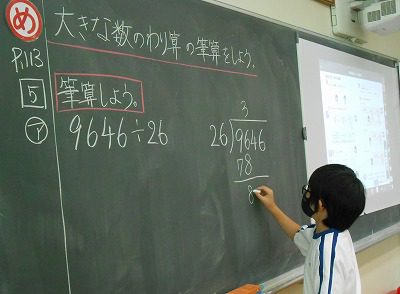 め
大きな数のわり算の筆算をしよう。
P.113
5
筆算しよう。
ア
9646÷26
3
26)9646
78
8